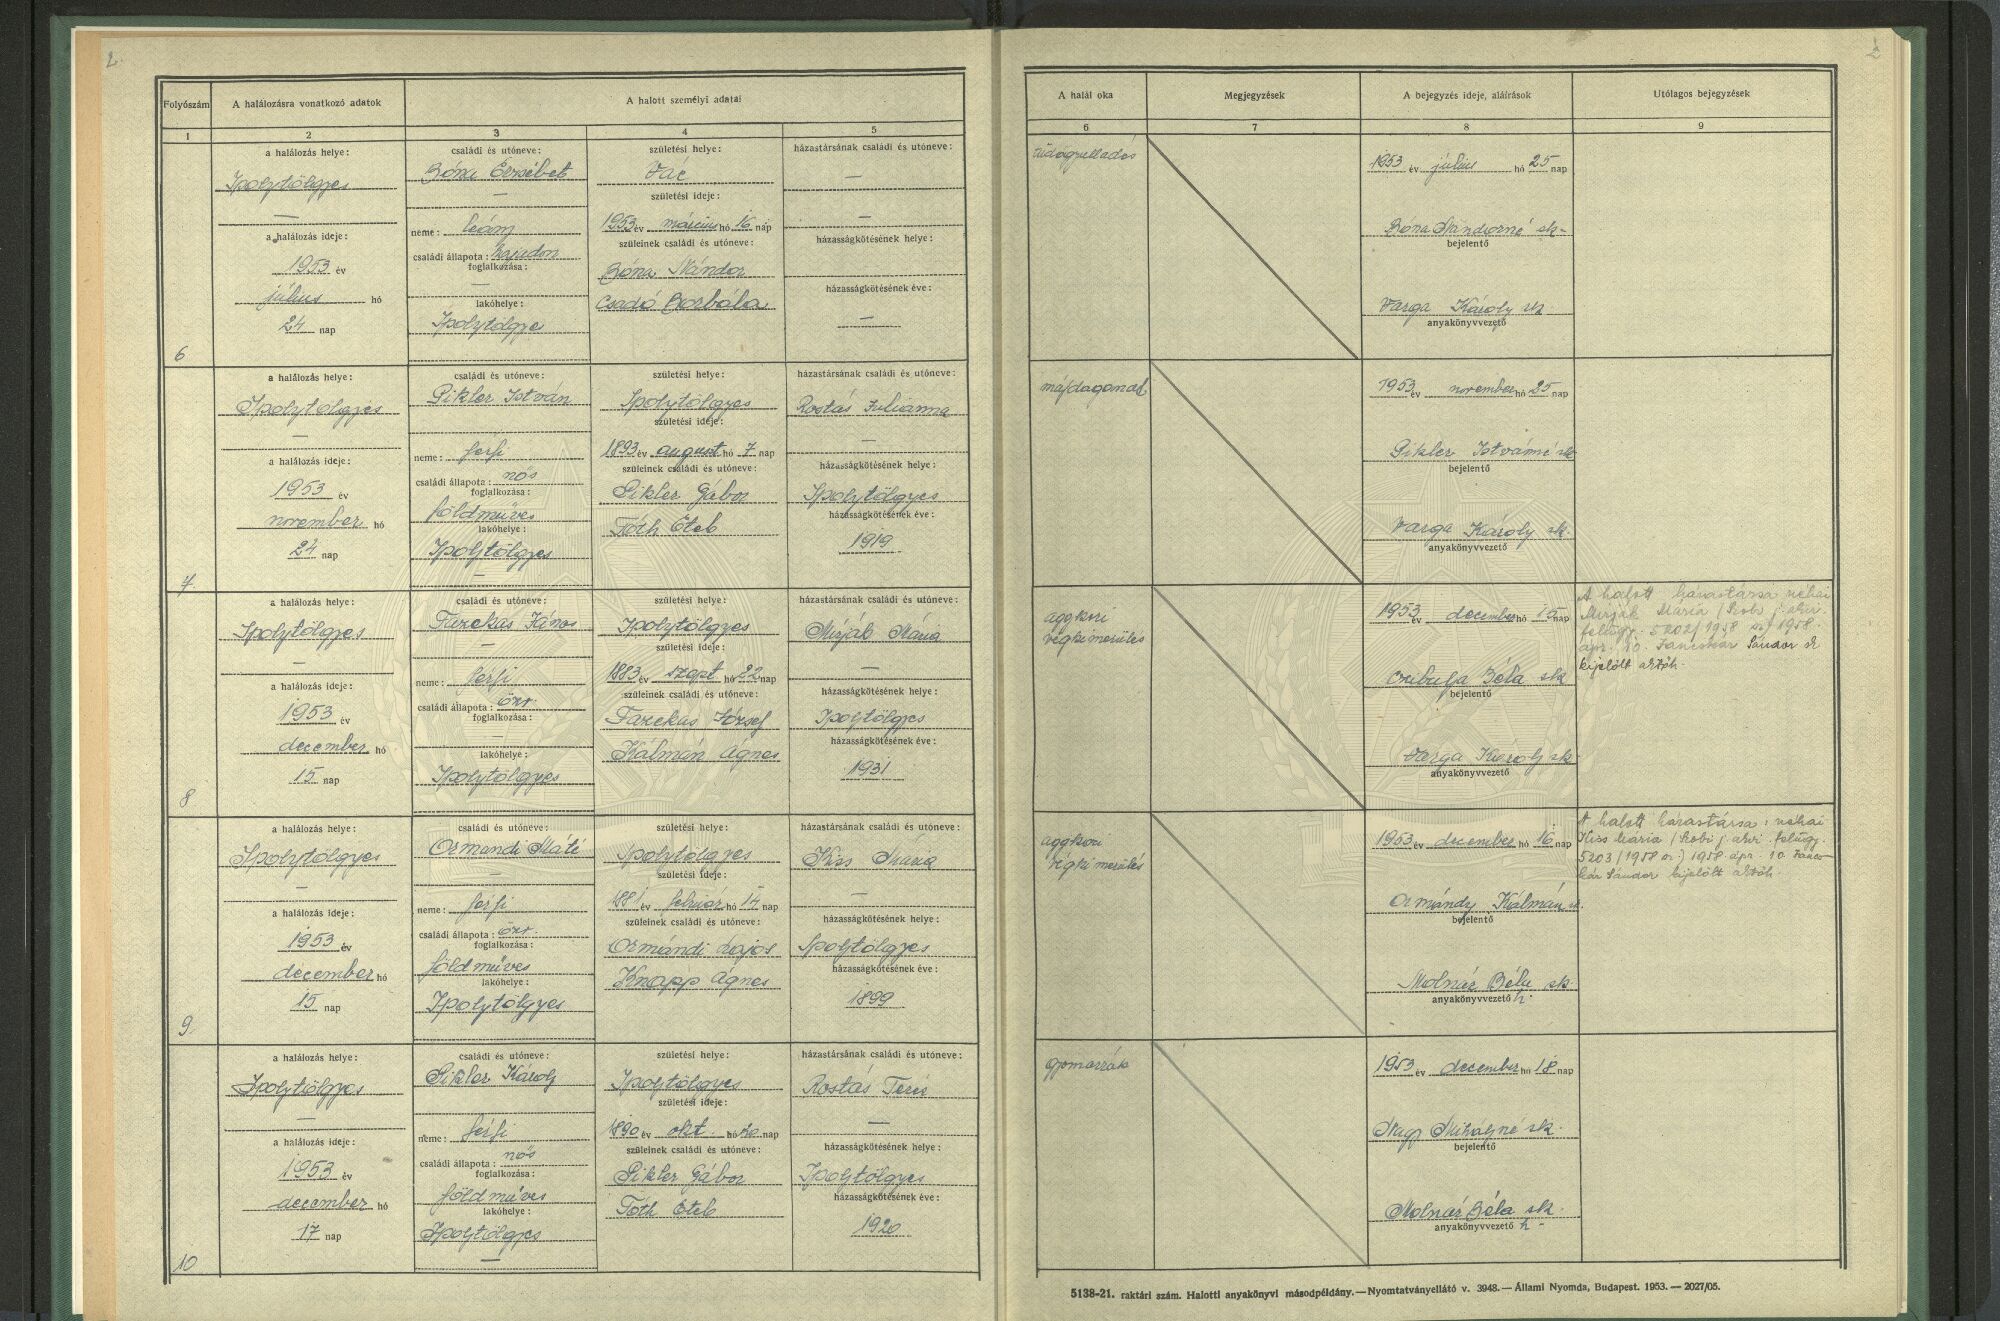 2.
2
Folyószám
A halálozásra vonatkozó adatok
A halott személyi adatai
1
2
3
4
5
a halálozás helye:
Ipolytölgyes
—
a halálozás ideje:
1953 év
július hó
24 nap
6
családi és utóneve:
Róna Erzsébet
—
neme: leány
családi állapota: hajadon
foglalkozása:
—
lakóhelye:
Ipolytölgye
születési helye:
Vác
születési ideje:
1953 év március hó 16 nap
szüleinek családi és utóneve:
Róna Nándor
Csadó Borbála
házastársának családi és utóneve:
—
—
házasságkötésének helye:
házasságkötésének éve:
—
a halálozás helye:
Ipolytölgyes
—
a halálozás ideje:
1953 év
november hó
24 nap
7.
családi és utóneve:
Pikler István
neme: férfi
családi állapota: nős
foglalkozása:
földműves
lakóhelye:
Ipolytölgyes
—
születési helye:
Ipolytölgyes
születési ideje:
1893 év august hó 7 nap
szüleinek családi és utóneve:
Pikler Gábor
Tóth Etel
házastársának családi és utóneve:
Rostás Julianna
—
házasságkötésének helye:
Ipolytölgyes
házasságkötésének éve:
1919
a halálozás helye:
Ipolytölgyes
—
a halálozás ideje:
1953 év
december hó
15 nap
8
családi és utóneve:
Fazekas János
—
neme: férfi
családi állapota: özv.
foglalkozása:
—
lakóhelye:
Ipolytölgyes
születési helye:
Ipolytölgyes
születési ideje:
1883 év szept hó 22 nap
szüleinek családi és utóneve:
Fazekas József
Kálmán Ágnes
házastársának családi és utóneve:
Mirják Mária
—
házasságkötésének helye:
Ipolytölgyes
házasságkötésének éve:
1931
a halálozás helye:
Ipolytölgyes
—
a halálozás ideje:
1953 év
december hó
15 nap
9.
családi és utóneve:
Ormándi Máté
—
neme: férfi
családi állapota: özv.
foglalkozása:
földműves
lakóhelye:
Ipolytölgyes
születési helye:
Ipolytölgyes
születési ideje:
1881 év február hó 14 nap
szüleinek családi és utóneve:
Ormándi Lajos
Knapp Ágnes
házastársának családi és utóneve:
Kiss Mária
—
házasságkötésének helye:
Ipolytölgyes
házasságkötésének éve:
1899
a halálozás helye:
Ipolytölgyes
—
a halálozás ideje:
1953 év
december hó
17 nap
10
családi és utóneve:
Pikler Károly
neme: férfi
családi állapota: nős
foglalkozása:
földműves
lakóhelye:
Ipolytölgyes
—
születési helye:
Ipolytölgyes
születési ideje:
1890 év okt. hó nap
szüleinek családi és utóneve:
Pikler Gábor
Tóth Etel
házastársának családi és utóneve:
Rostás Teréz
—
házasságkötésének helye:
Ipolytölgyes
házasságkötésének éve:
1920
A halál oka
Megjegyzések
A bejegyzés ideje, aláírások
Utólagos bejegyzések
6
7
8
9
1953 év július hó 25 nap
Róna Nándorné sk.
bejelentő
Varga Károly sk.
anyakönyvvezető
májdaganat
1953 év november hó 25 nap
Pikler Istvánné sk
bejelentő
Varga Károly sk.
anyakönyvvezető
aggkori
végkimerülés
1953 év december hó 15 nap
Czibulya Béla sk
bejelentő
Varga Károly sk
anyakönyvvezető
A halott házastársa néhai
Mirják Mária /Szobi j. akvi.
felügy. 5202/1958 sz/ 1958.
ápr. 10. Sándor sk
kijelölt aktőh.
aggkori
végkimerülés
1953 év december hó 16 nap
Ormándy Kálmán sk.
bejelentő
Molnár Béla sk
anyakönyvvezető h.
A halott házastársa néhai
Kiss Mária /Szobi j. akvi. felügy.
5203/1958 sz./ 1958 ápr. 10.
Sándor kijelölt aktőh.
gyomorrák
1953 év december hó 18 nap
Nagy Mihályné sk.
bejelentő
Molnár Béla sk.
anyakönyvvezető h-
5138-21. raktári szám. Halotti anyakönyvi másodpéldány.—Nyomtatványellátó v. 3948.—Állami Nyomda, Budapest. 1953.—2027/05.